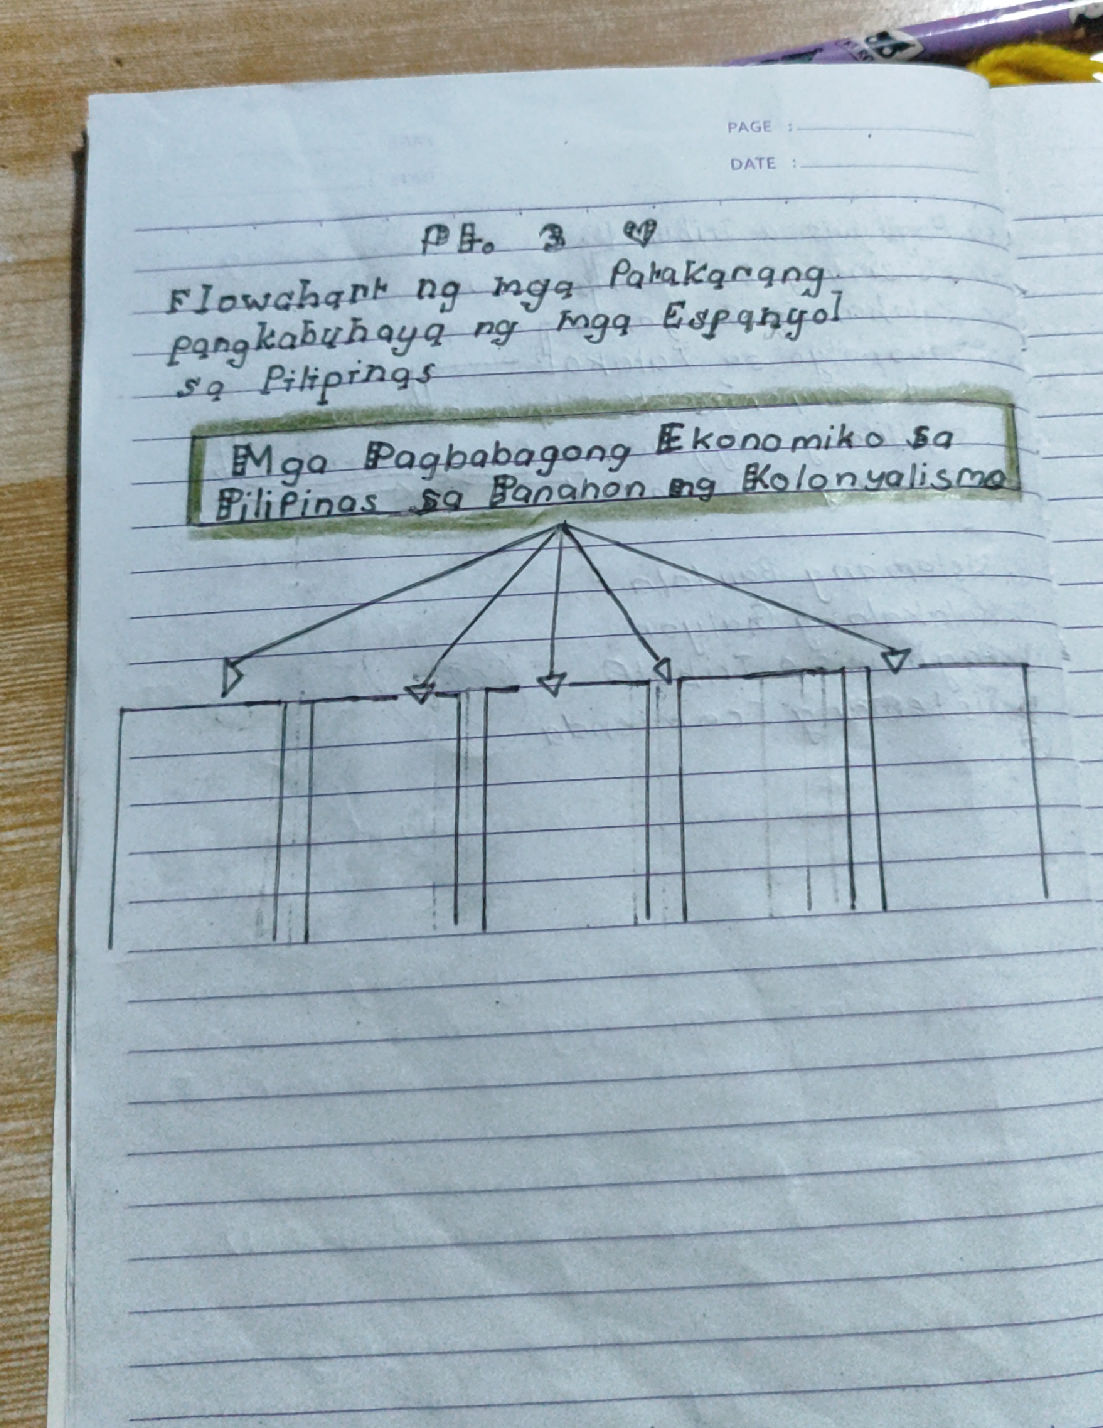 PAGE :
DATE :
Pt. 3
Flowchart ng mga Patakarang
pangkabuhaya ng mga Espanyol
sa Pilipinas
Mga Pagbabagong Ekonomiko sa
Pilipinas sa Panahon ng Kolonyalismo